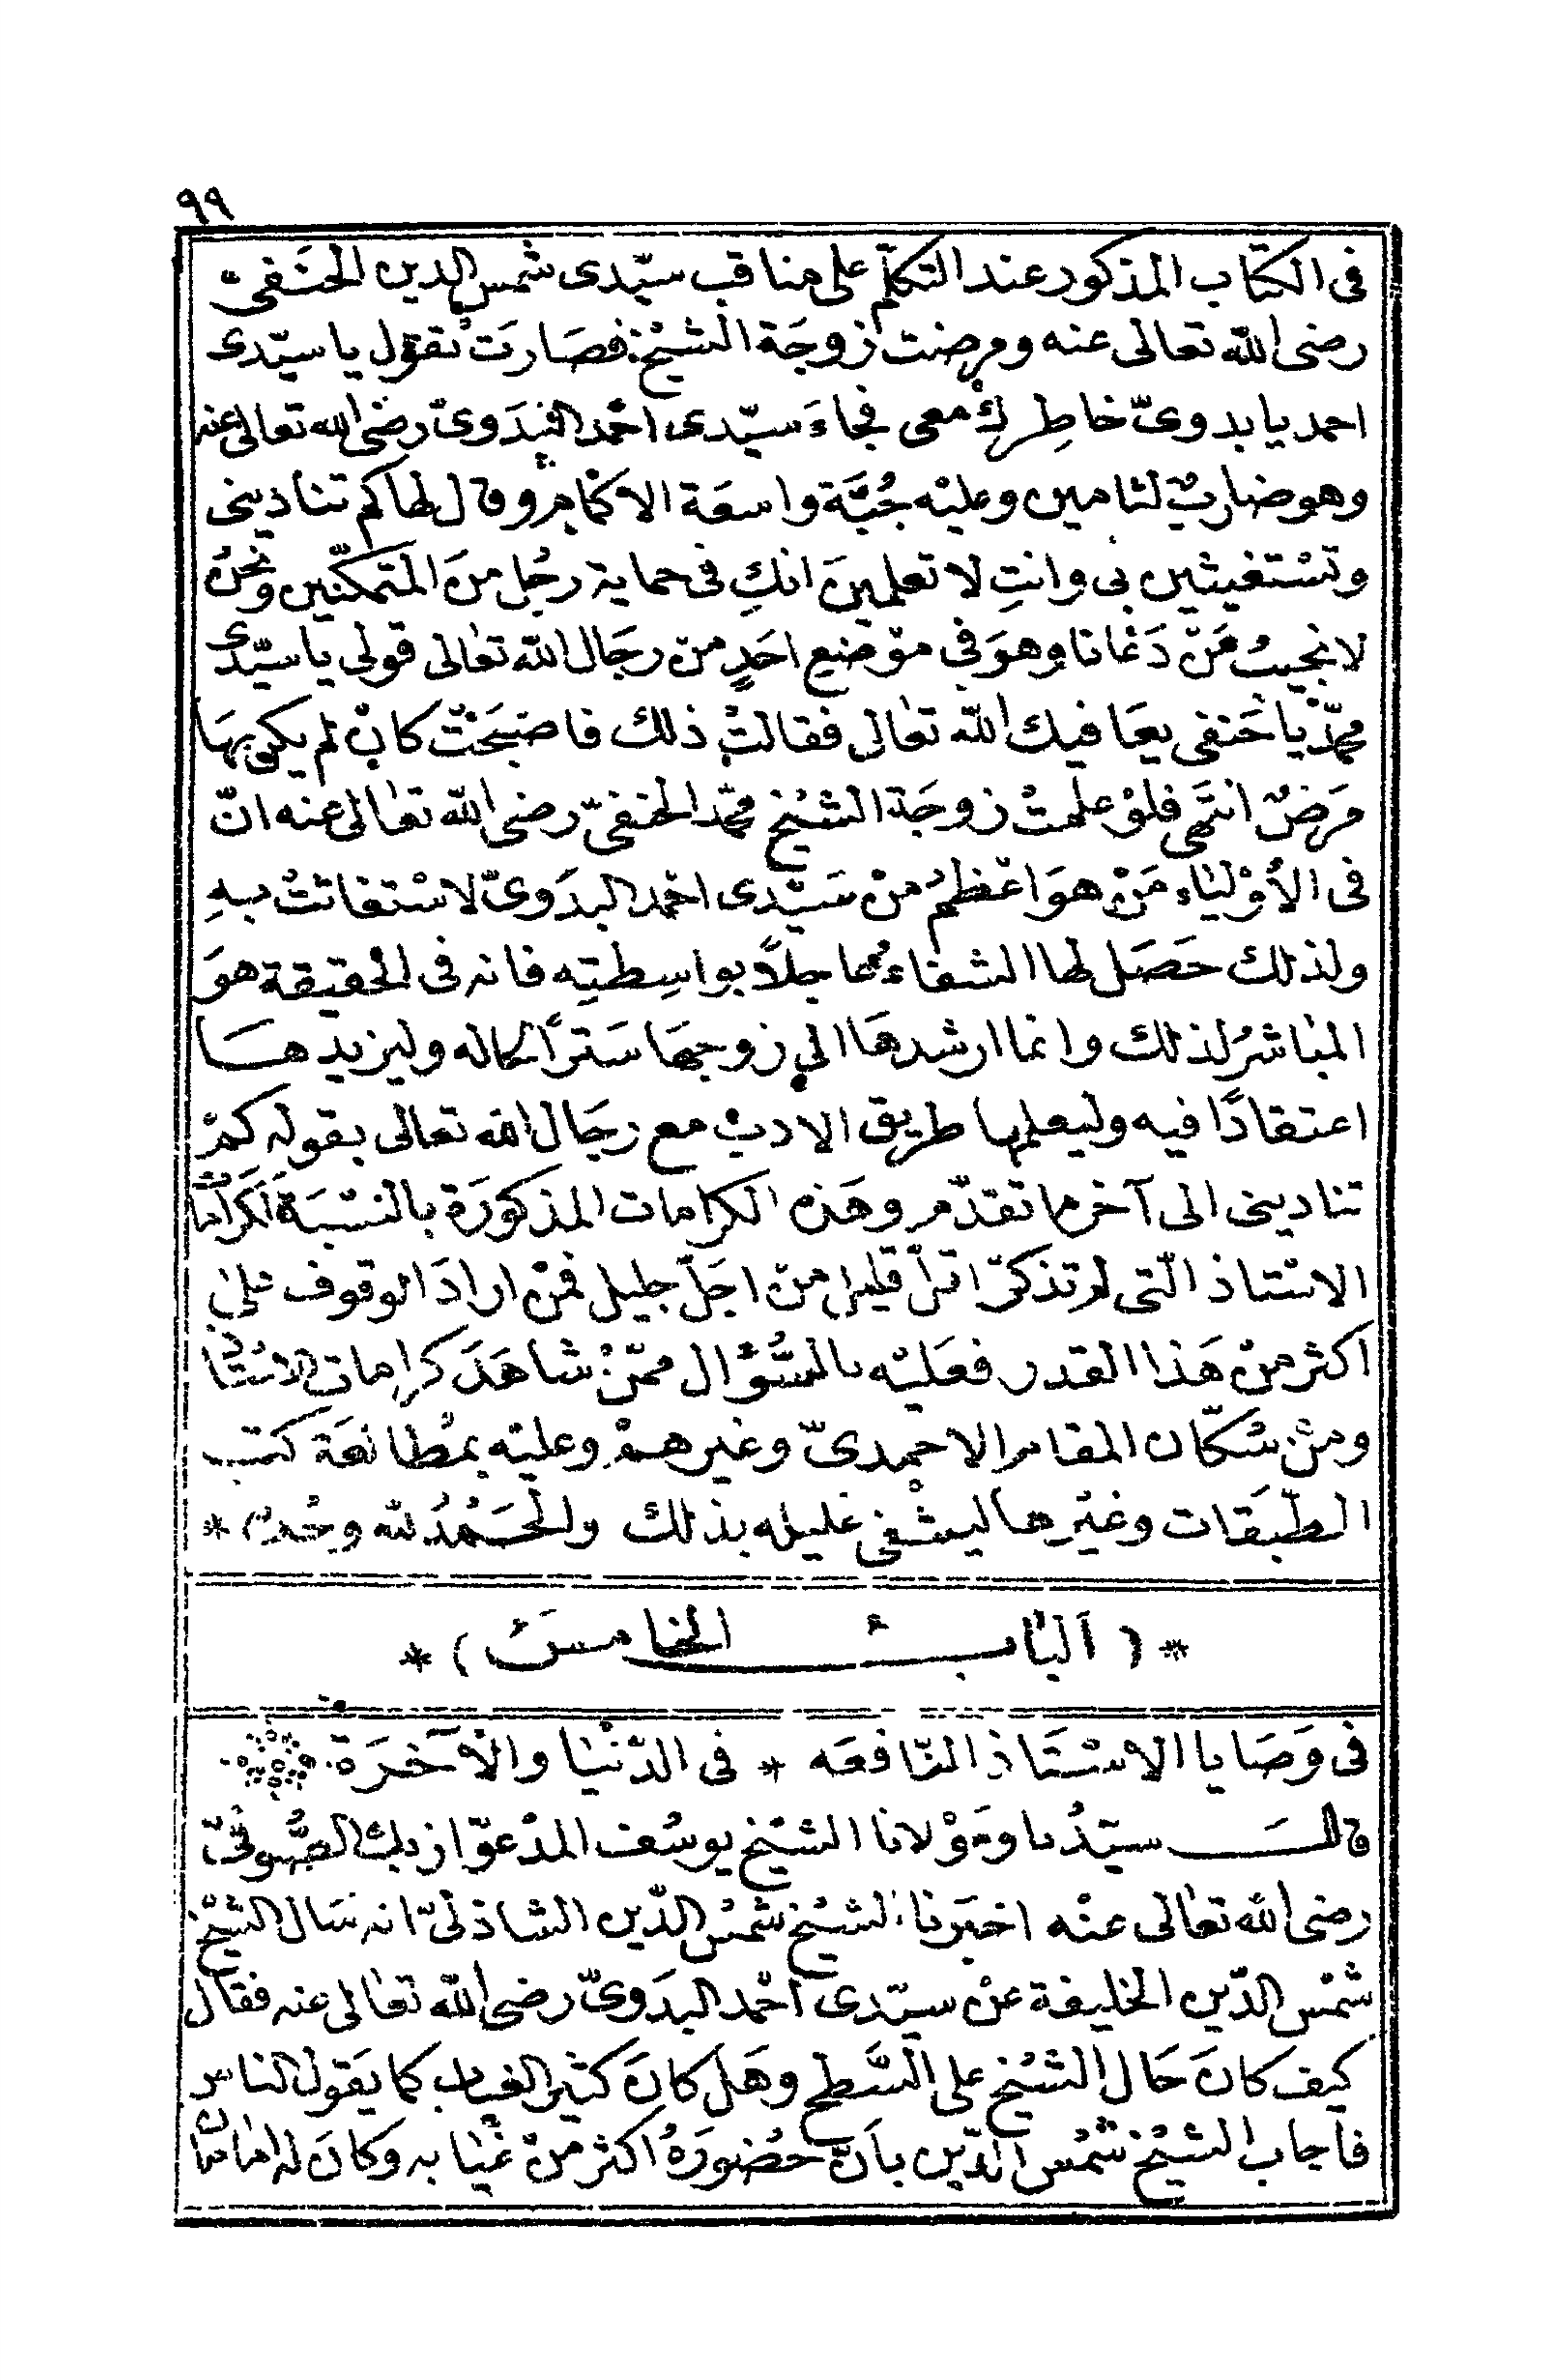 ٩٩
فى الكتاب المذكور عند التكلّم على مناقب سيّدى شمس الدين الحنَفىّ
رضى الله تعالى عنه ومرضت زوجَة الشيْخ فصَارَتْ تقوّل يا سيّدى
احمد يا بدوىّ خاطِركْ معى فجاءَ سيّدى احمْد البَدَوىّ رضى الله تعالى عنه
وهو ضاربٌ لثامين وعليْه جُبَّة واسعَة الاكمَامِ وقال لها كم تناديَنى
وتسْتغيثين بى وانتِ لا تعلمينَ انكِ فى حماية رجُل منَ المتمكّنين ونحْنُ
لا نجيبُ مَنْ دَعَانا وهوَ فى موْضِع احَدٍ من رجَال الله تعالى قولى يا سيّدى
محمّد يا حَنفى يعَافيك الله تعالى فقالتْ ذلك فاصْبَحَتْ كانْ لم يكن بهَا
مَرضٌ انتهَى فلوْ علمتْ زوجَة الشيْخ محمّد الحنفىّ رضى الله تعالى عنه انّ
فى الأوْليَاء مَنْ هوَ اعْظمُ منْ سَيّدى احْمد البدَوىّ لاسْتغاثتْ بهِ
ولذلك حَصَل لها الشفاءُ عاجلاً بواسِطتِه فانه فى الحقيقة هوَ
المبَاشرُ لذلك وانما ارشدهَا الى زوجهَا سَترًا لحاله وليزيدهَا
اعتقادًا فيه وليعلمها طريق الادب مع رجَال الله تعالى بقوله كمْ
تناديَنى الى آخر ما تقدّم وهَذه الكرامات المذكورَة بالنسْبَة لكَرامَات
الاسْتاذ الّتى لم تذكرْ اقلّ قليل من اجَلّ جليل فمَنْ ارادَ الوقوف علىٰ
اكثر منْ هَذا القدر فعَليْه بالسُّؤال ممّنْ شاهَدَ كرامات الاسْتاذ
ومنْ سُكّان المقام الاحمدىّ وغيرهمْ وعليْه بمُطالعَة كتب
الطّبَقات وغيْرها ليشفى غليله بذلك والحَمْدُ لله وحْدهُ *
* ( اَلبَابُ الخامسُ ) *
فى وَصَايا الاسْتَاذ النّافعَه * فى الدّنْيَا والآخرَة
قالَ سيّدُنا وموْلانا الشيْخ يوسُف المدْعوّ ازبك الصُّوفىّ
رضى الله تعالى عنْه اخبَرنا الشيْخ شمْس الدّين الشاذلىّ انه سَال الشيْخ
شمْس الدّين الخليفة عنْ سيّدى احْمد البدَوىّ رضى الله تعالى عنه فقال
كيف كانَ حَال الشيْخ على السَّطح وهَل كانَ كثير الغياب كما يَقول الناس
فاجاب الشيْخ شمْس الدّين بانّ حضُورَهُ اكثر منْ غيَابه وكانَ له امَامَان